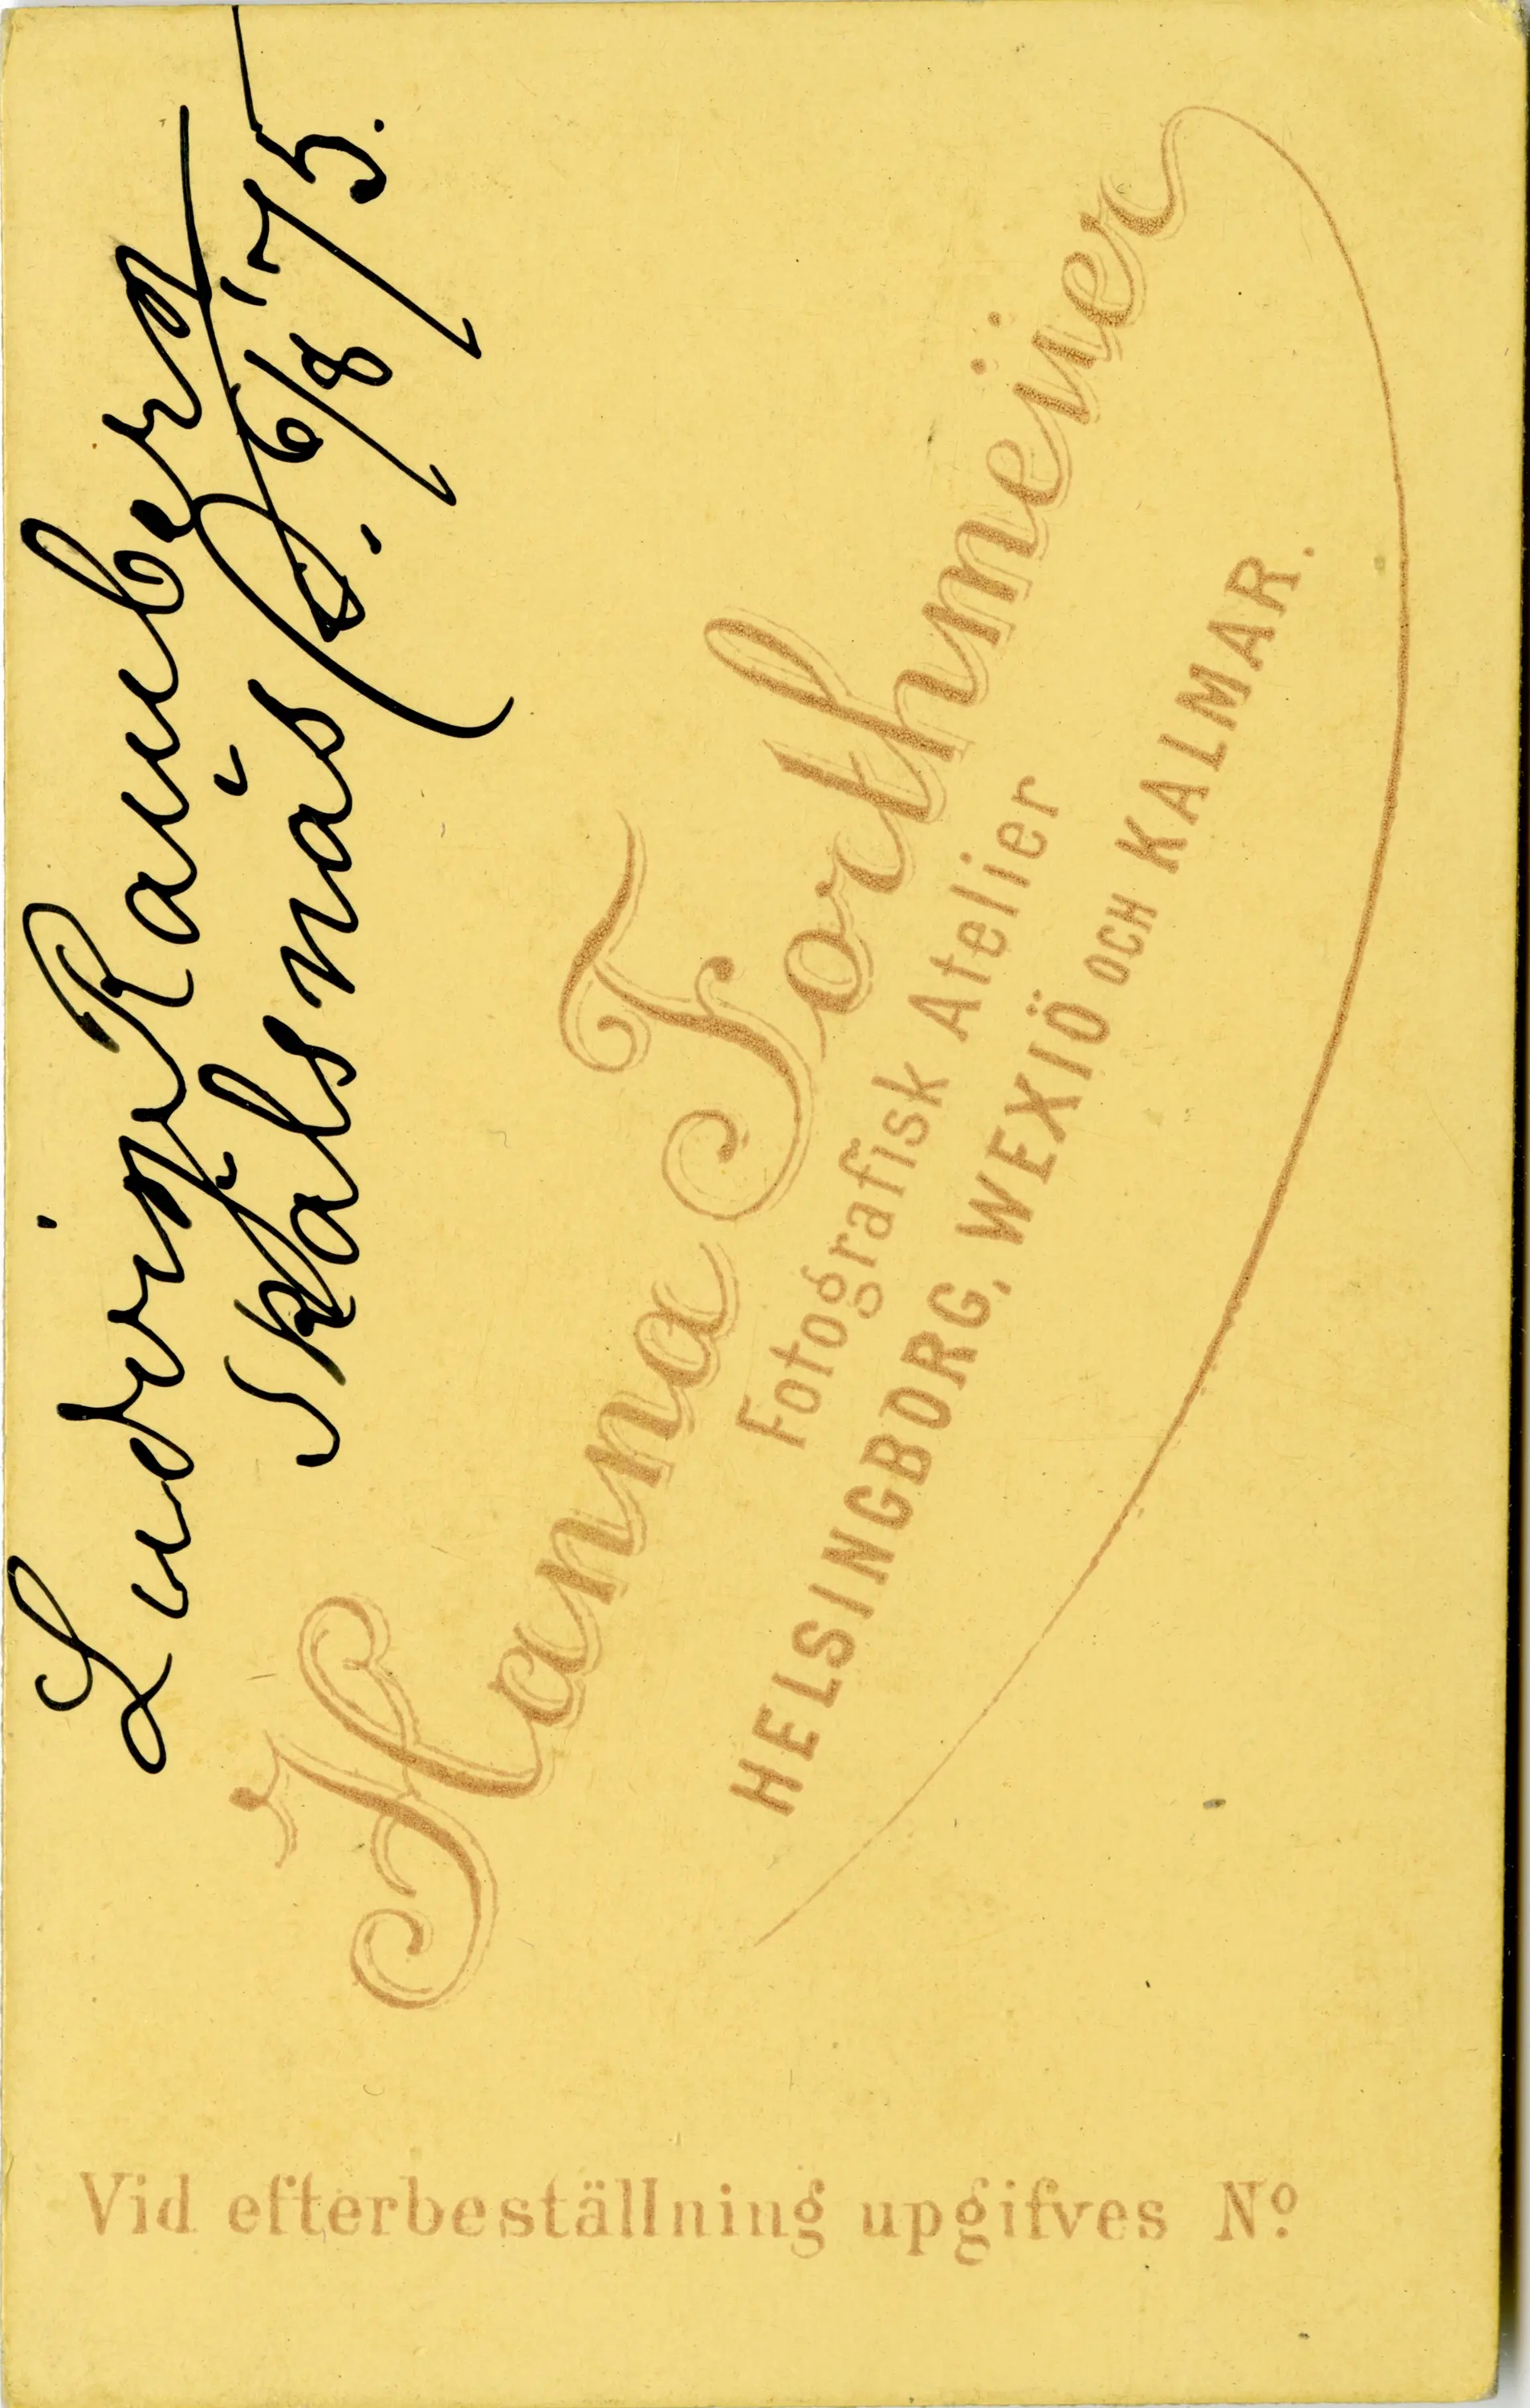 Ludvig Rauberg
Skalsnäs d. 6/8 '75.
Hanna Forthmeiier
Fotografisk Atelier
HELSINGBORG, WEXIÖ OCH KALMAR.
Vid efterbeställning upgifves Nº